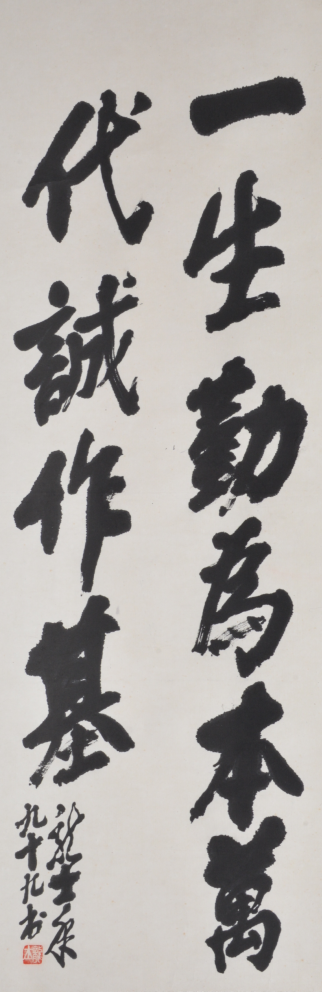 一生勤為本萬
代誠作基
九十九书